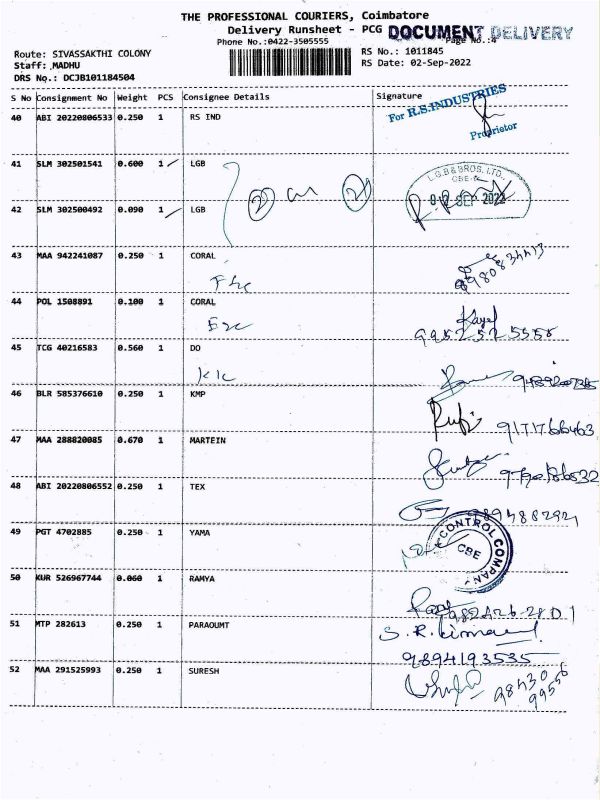 THE PROFESSIONAL COURIERS, Coimbatore
Delivery Runsheet - PCG DOCUMENT DELIVERY
Phone No.:0422-3505555 Page No.:4
Route: SIVASSAKTHI COLONY RS No.: 1011845
Staff: MADHU RS Date: 02-Sep-2022
DRS No.: DCJB101184504
S No Consignment No Weight PCS Consignee Details Signature
40 ABI 20220806533 0.250 1 RS IND
For R.S.INDUSTRIES
Proprietor
41 SLM 302501541 0.600 1 LGB
L.G.B & BROS. LTD.,
CBE-6
02 SEP 2022
42 SLM 302500492 0.090 1 LGB
43 MAA 942241087 0.250 1 CORAL
44 POL 1508891 0.100 1 CORAL
45 TCG 40216583 0.560 1 DO
46 BLR 585376610 0.250 1 KMP
47 MAA 288820085 0.670 1 MARTEIN
48 ABI 20220806552 0.250 1 TEX
49 PGT 4702885 0.250 1 YAMA
CONTROL COMPANY
CBE
50 KUR 526967744 0.060 1 RAMYA
51 MTP 282613 0.250 1 PARAOUMT
9894193535
52 MAA 291525993 0.250 1 SURESH